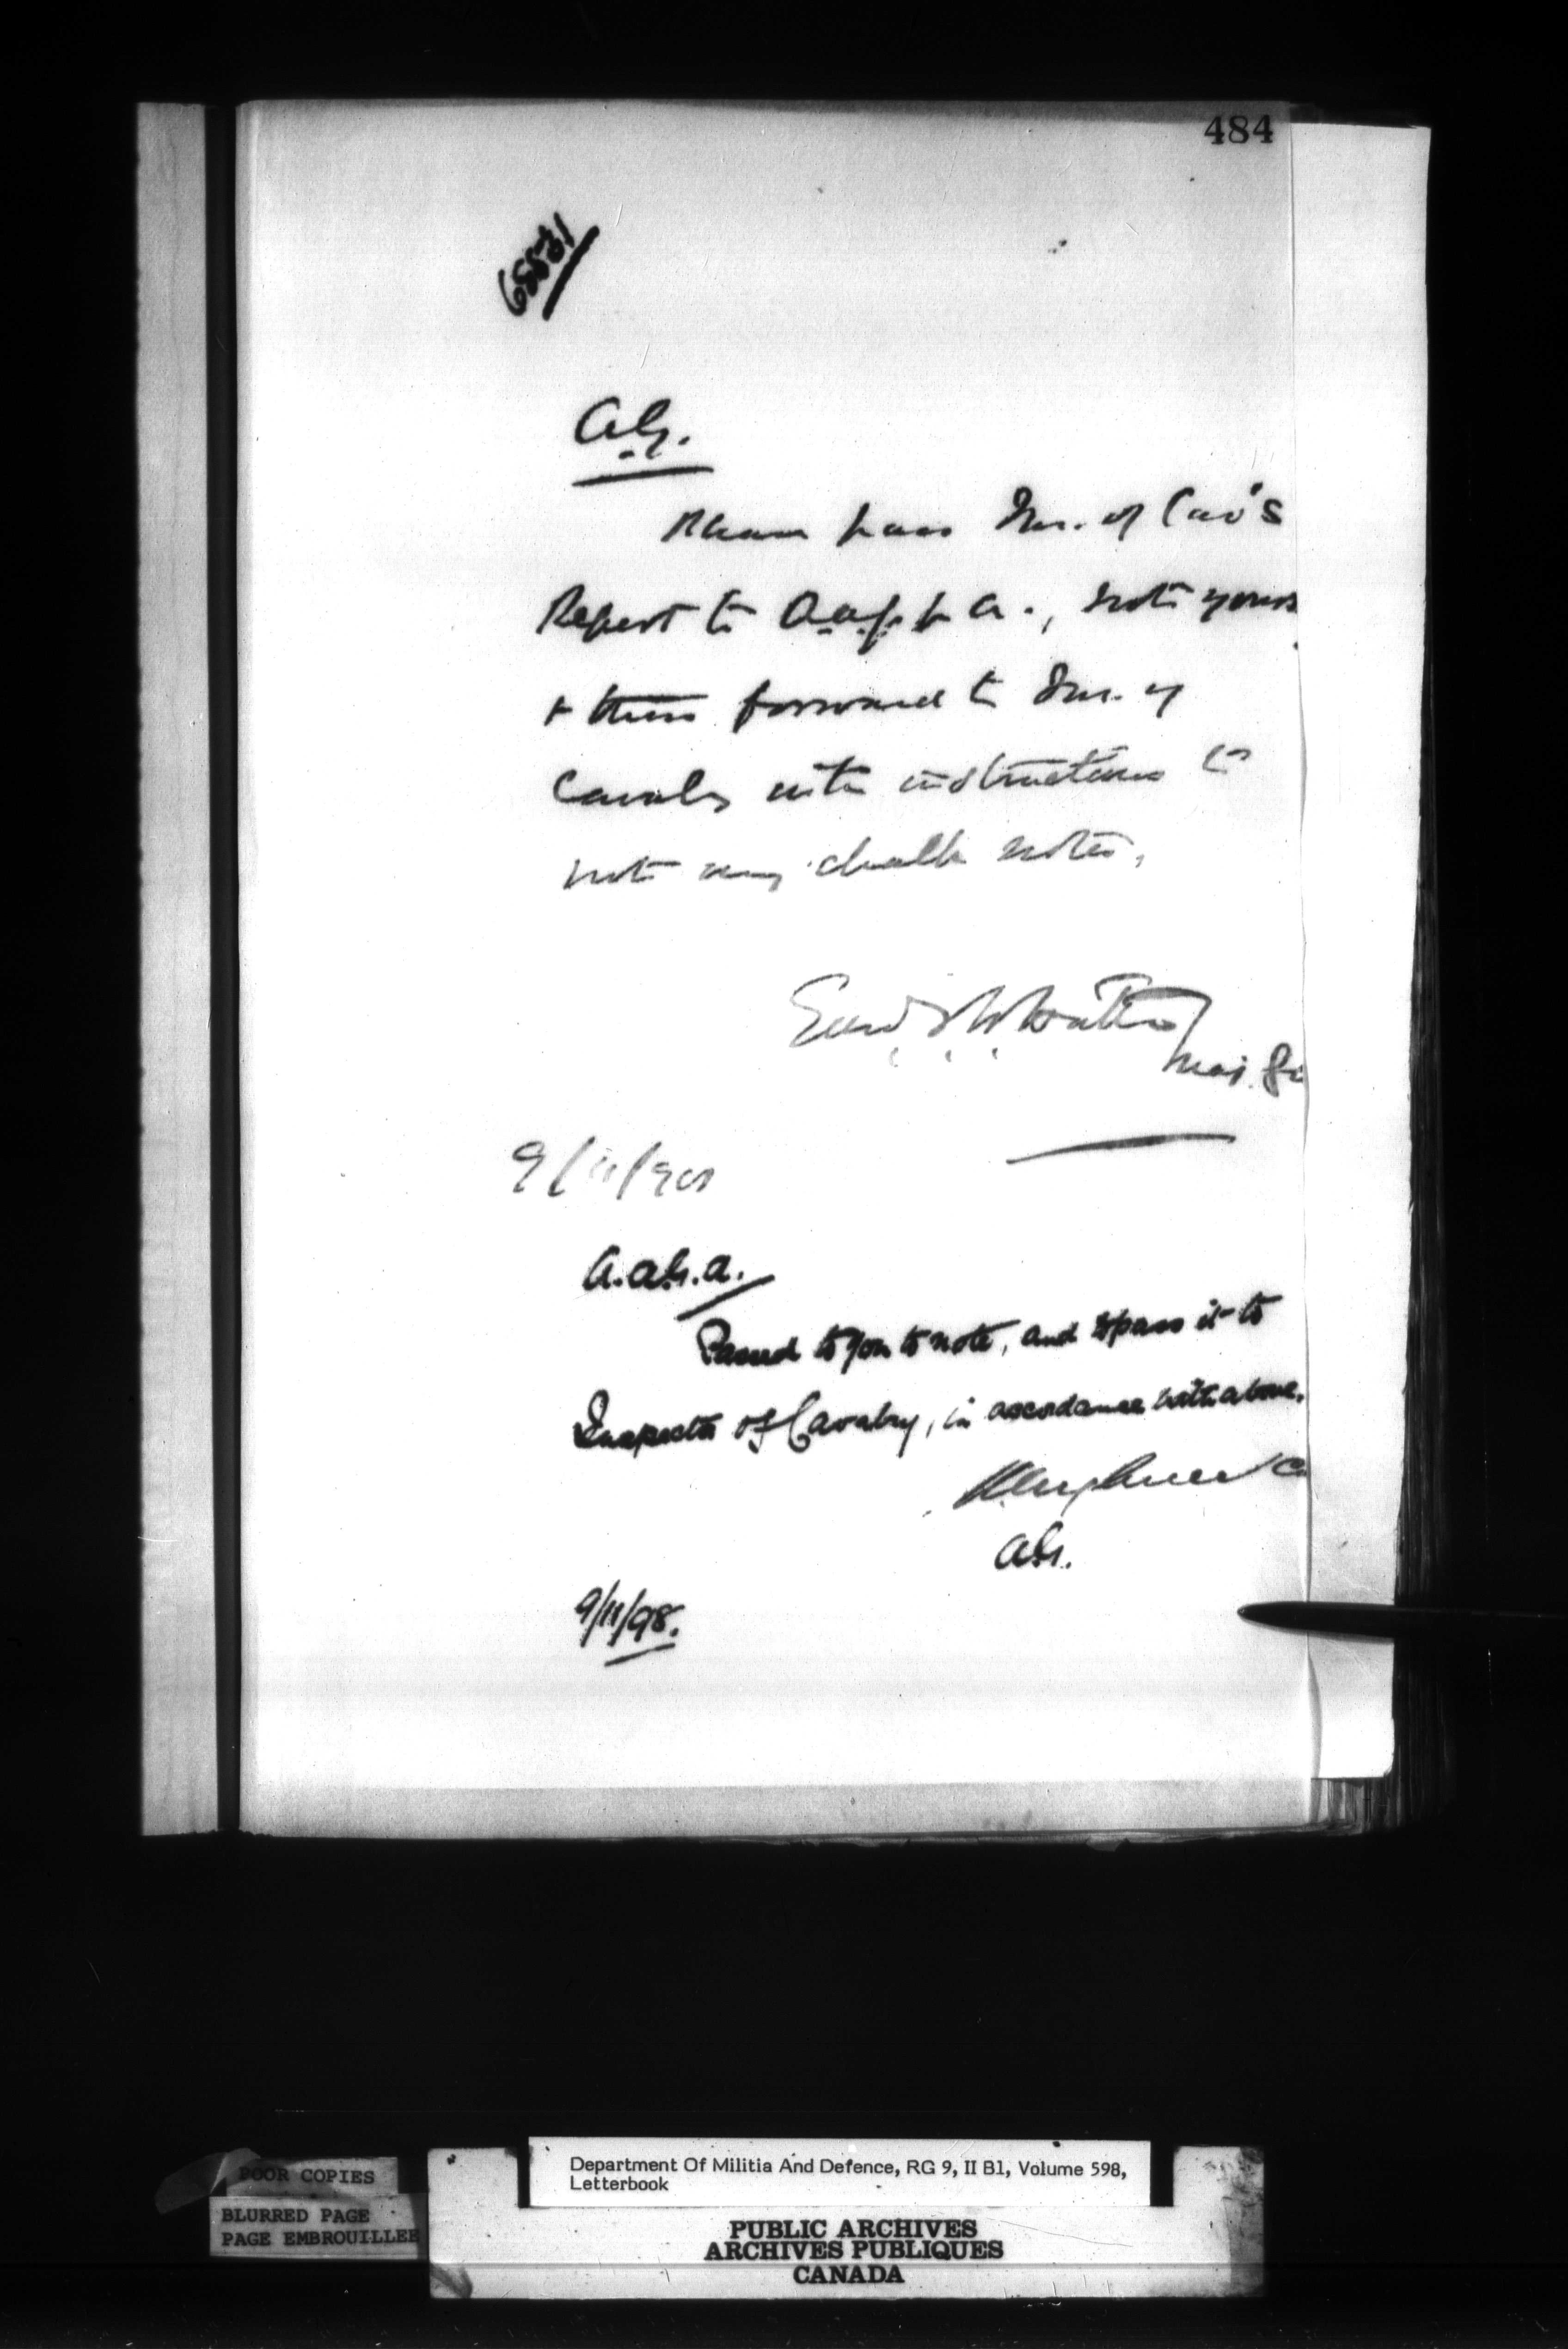 484
A.G.
Please pass Ins. of Cav's
Report to A.A.G. for A., note yours
& then forward to Ins. of
Cavalry with instructions to
note my chalk notes.
Maj. Ge
9/11/98
A.A.G.A.
Passed to you to note, and to pass it to
Inspector of Cavalry, in accordance with above.
A.G.
9/11/98.
POOR COPIES
BLURRED PAGE
PAGE EMBROUILLEE
Department Of Militia And Defence, RG 9, II B1, Volume 598,
Letterbook
PUBLIC ARCHIVES
ARCHIVES PUBLIQUES
CANADA